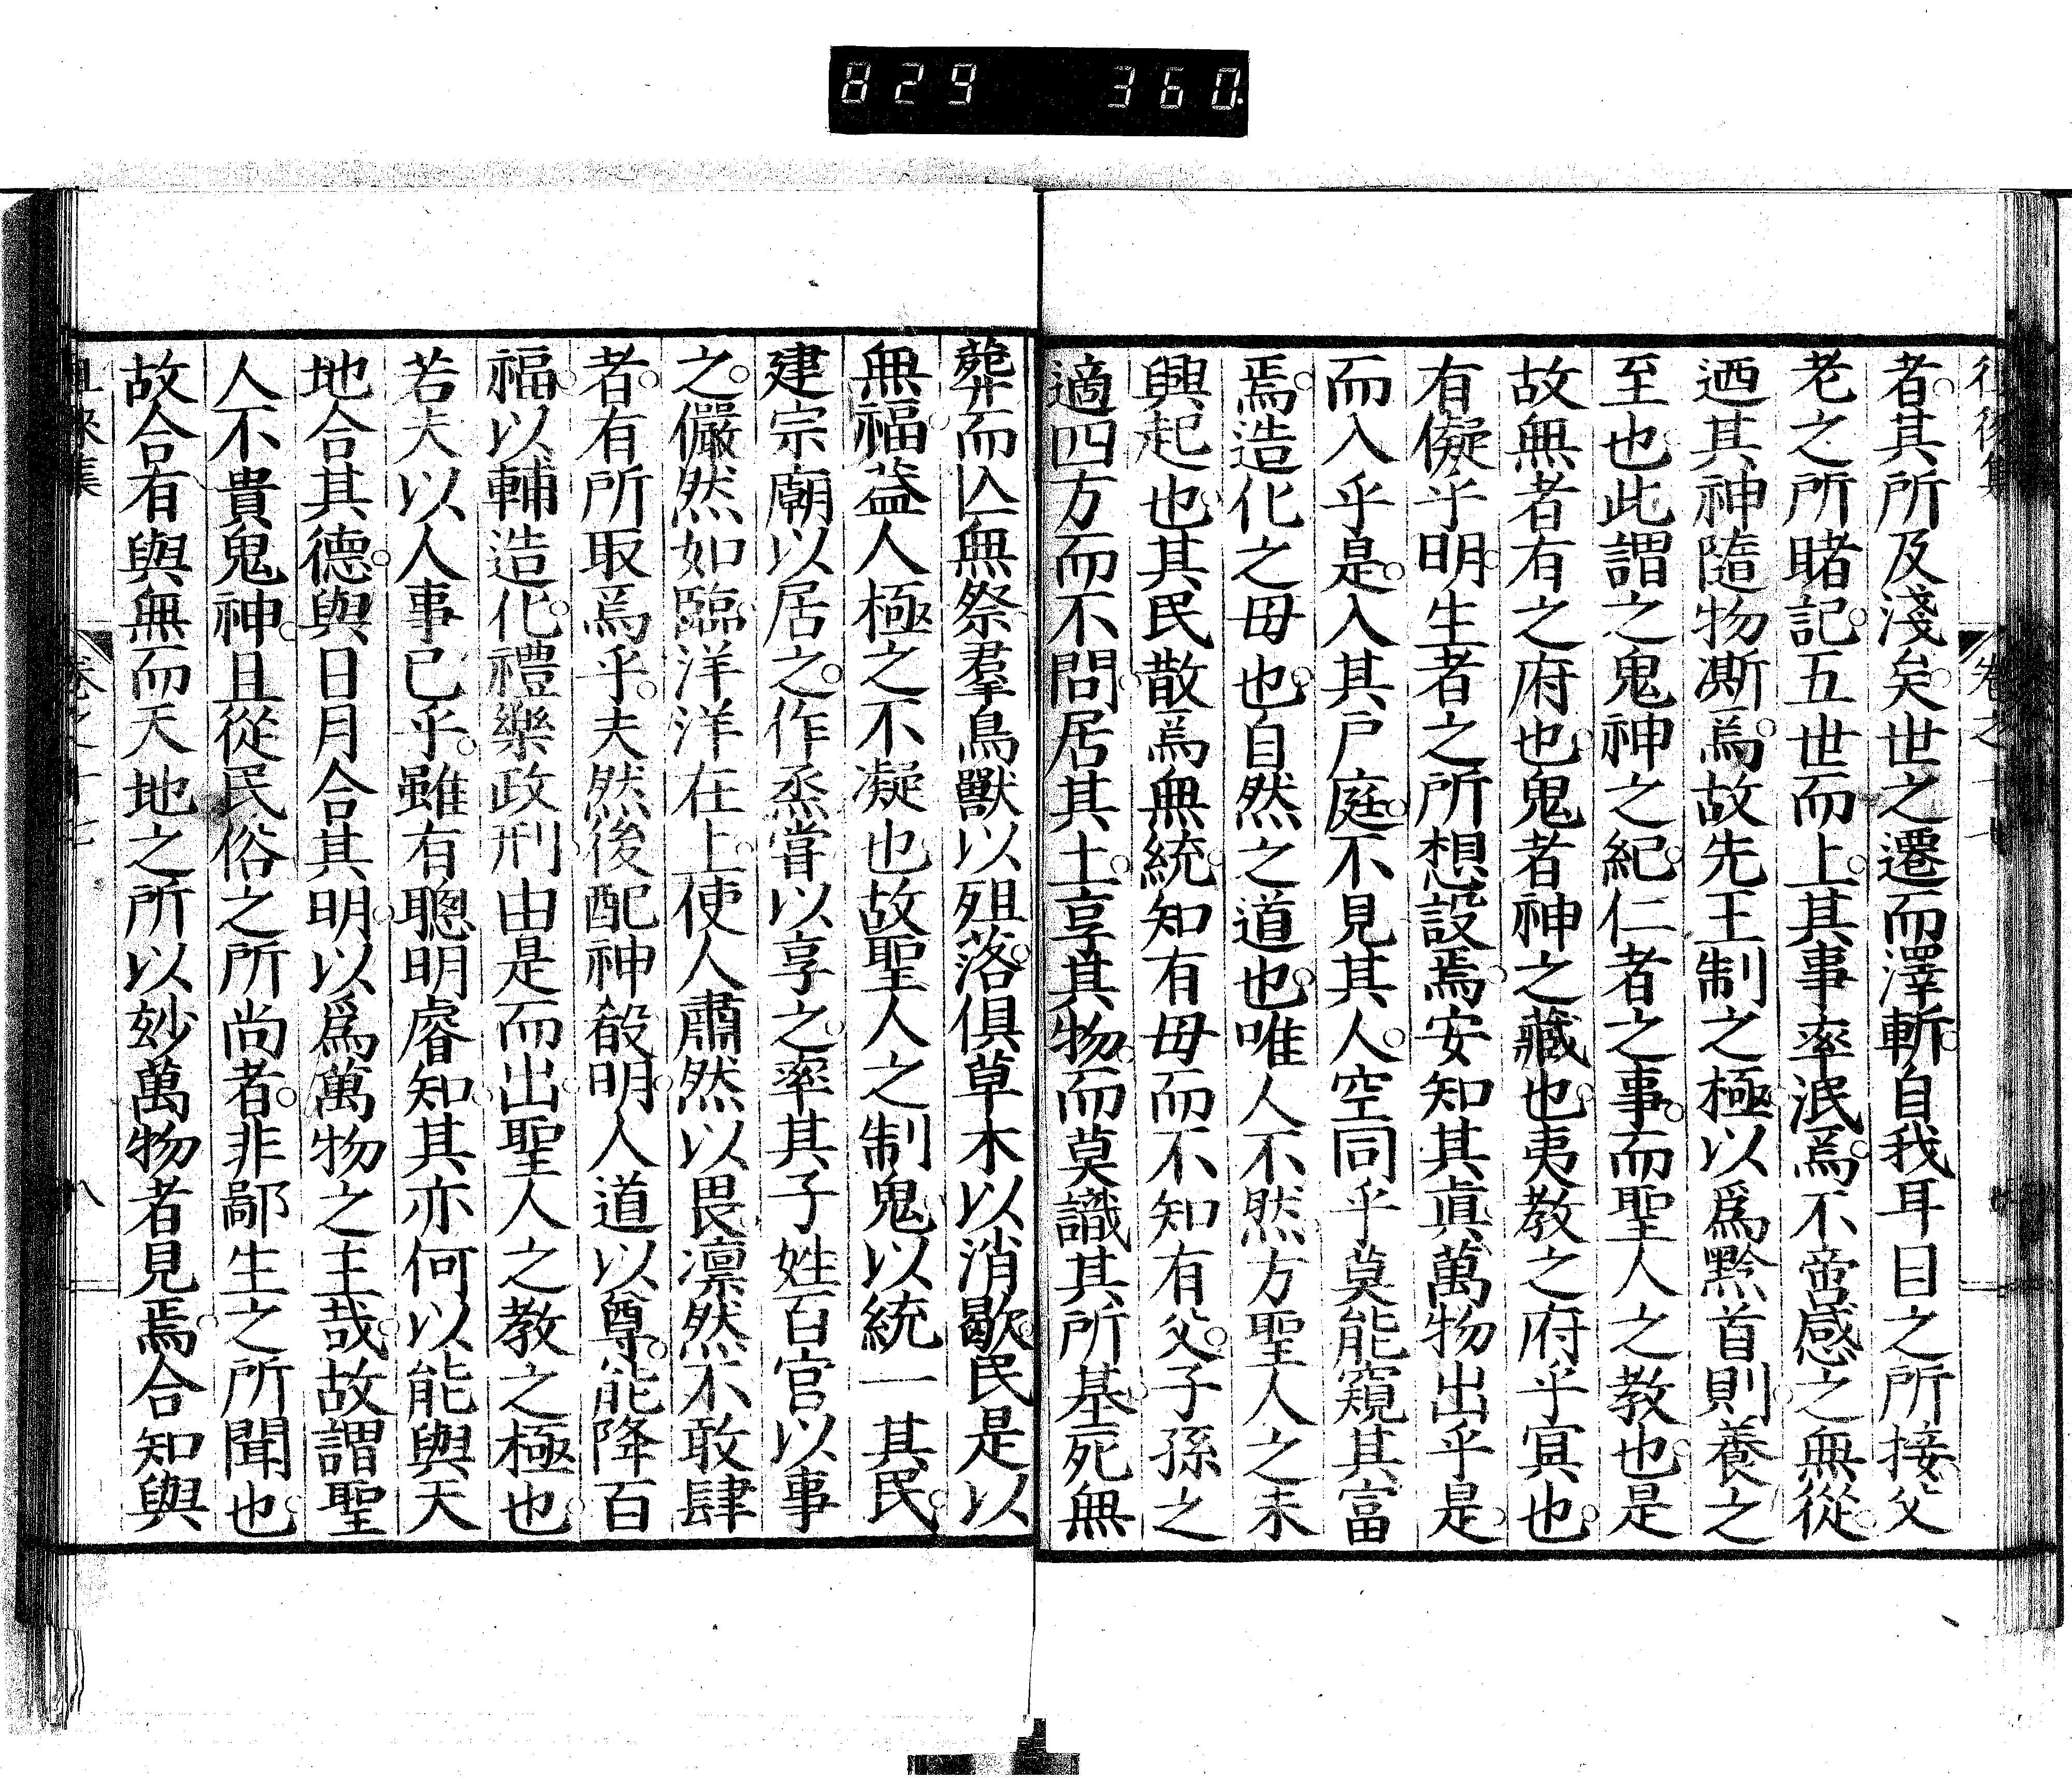 829 360
者其所及淺矣世之遷而澤斬自我耳目之所接父
老之所睹記五世而上其事率泯焉不啻感之無從
迺其神隨物澌焉故先王制之極以爲黔首則養之
至也此謂之鬼神之紀仁者之事而聖人之教也是
故無者有之府也鬼者神之藏也夷教之府乎冥也
有儗乎明生者之所想設焉安知其眞萬物出乎是
而入乎是入其戶庭不見其人空同乎莫能窺其富
焉造化之毋也自然之道也唯人不然方聖人之未
興起也其民散焉無統知有毋而不知有父子孫之
適四方而不問居其土享其物而莫識其所基死無
葬而亾無祭羣鳥獸以殂落俱草木以消歇民是以
無福葢人極之不凝也故聖人之制鬼以統一其民
建宗廟以居之作烝嘗以享之率其子姓百官以事
之儼然如臨洋洋在上使人肅然以畏凛然不敢肆
者有所取焉乎夫然後配神殽明人道以尊能降百
福以輔造化禮樂政刑由是而出聖人之教之極也
若夫以人事已乎雖有聰明睿知其亦何以能與天
地合其德與日月合其明以爲萬物之主哉故謂聖
人不貴鬼神且從民俗之所尚者非鄙生之所聞也
故合有與無而天地之所以玅萬物者見焉合知與
卷之十七 八